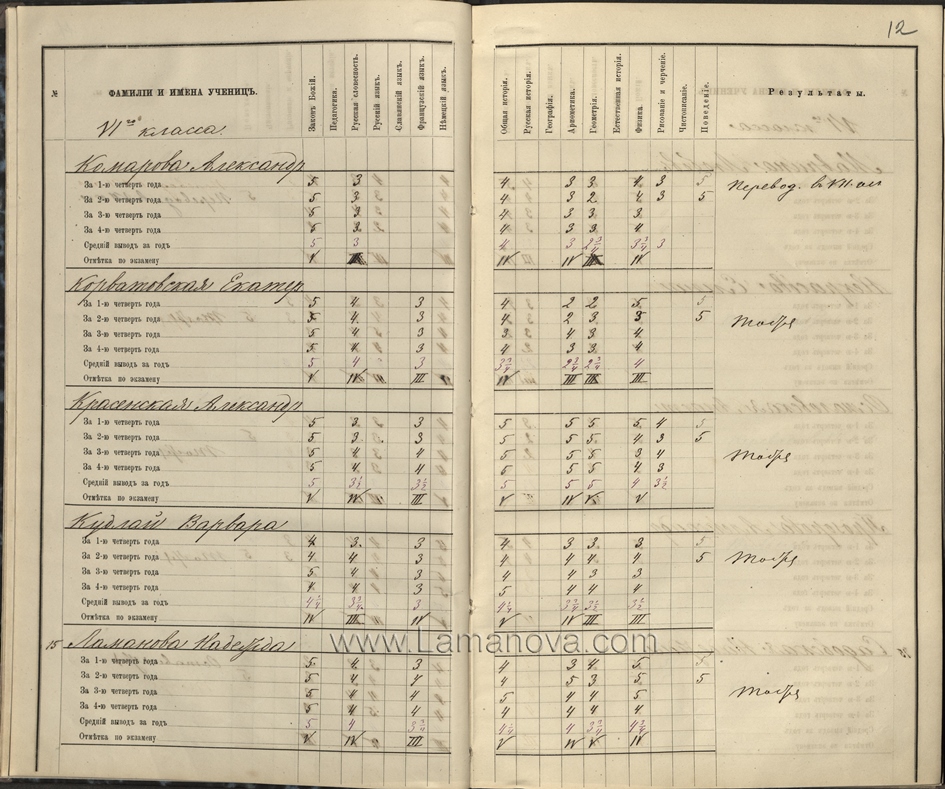 12
№ ФАМИЛІИ И ИМЕНА УЧЕНИЦЪ. Законъ Божій. Педагогика. Русская словесность. Русскій языкъ. Славянскій языкъ. Французскій языкъ. Нѣмецкій языкъ. Общая исторія. Русская исторія. Географія. Ариѳметика. Геометрія. Естественная исторія. Физика. Рисованіе и черченіе. Чистописаніе. Поведеніе. Результаты.
VI го класса.
Комарова Александр
За 1-ю четверть года 5 3 4 3 3 4 3 5 Перевод. в
За 2-ю четверть года 5 3 4 3 2 4 3 5
За 3-ю четверть года 5 3 4 3 3 3
За 4-ю четверть года 5 3 4 3 3 4
Средній выводъ за годъ 5 3 4 3 2 3/4 3 3/4 3
Отмѣтка по экзамену V III IV IV III IV
Корватовская Екатер
За 1-ю четверть года 5 4 3 4 2 2 5 5
За 2-ю четверть года 5 4 3 4 2 3 3 5 Тоже
За 3-ю четверть года 5 4 3 3 4 3 4
За 4-ю четверть года 5 4 3 4 3 3 4
Средній выводъ за годъ 5 4 3 3 3/4 2 3/4 2 3/4 4
Отмѣтка по экзамену V IV III IV III III III
Красенская Александр
За 1-ю четверть года 5 3 3 5 5 5 5 4 5
За 2-ю четверть года 5 3 3 5 5 5 4 3 5
За 3-ю четверть года 5 4 4 5 5 5 3 4 Тоже
За 4-ю четверть года 5 4 4 5 5 5 4 3
Средній выводъ за годъ 5 3 1/2 3 1/2 5 5 5 4 3 1/2
Отмѣтка по экзамену V IV III V IV V V
Кудлай Варвара
За 1-ю четверть года 4 3 3 4 3 3 3 5
За 2-ю четверть года 4 4 3 4 4 4 4 5 Тоже
За 3-ю четверть года 5 4 3 4 4 3 3
За 4-ю четверть года 4 4 3 5 4 4 4
Средній выводъ за годъ 4 1/4 3 3/4 3 4 1/4 3 3/4 3 1/2 3 1/2
Отмѣтка по экзамену IV III IV V IV III III
www.Lamanova.com
15 Ламанова Надежда
За 1-ю четверть года 5 4 3 4 3 4 5 5
За 2-ю четверть года 5 4 4 4 5 3 5 5
За 3-ю четверть года 5 4 4 5 4 4 5 Тоже
За 4-ю четверть года 5 4 4 4 4 4 4
Средній выводъ за годъ 5 4 3 3/4 4 1/4 4 3 3/4 4 3/4
Отмѣтка по экзамену V IV III V IV V IV